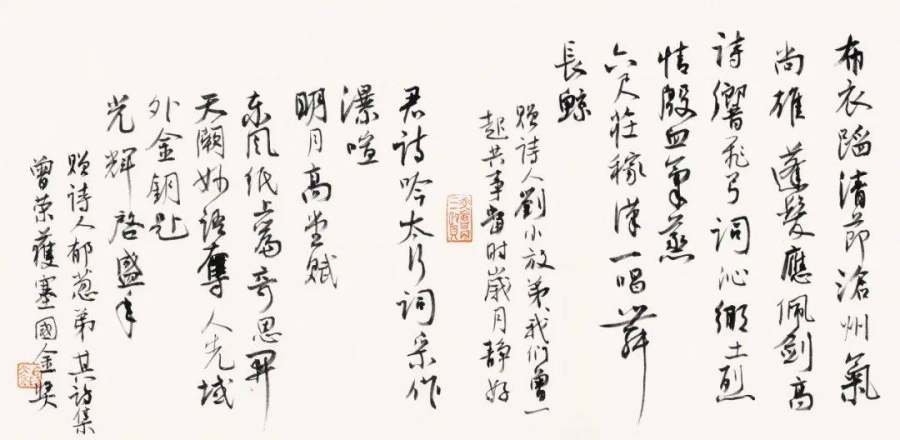 布衣蹈清節滄州氣
尚雄蓬髮應佩劍高
詩響飛弓詞沁鄉土烈
情殷血氣蒸
六尺莊稼漢一唱舞
長鯨
贈詩人劉小放弟我們曾一
起共事當時歲月静好
君詩吟太行詞采作
瀑喧
明月高堂賦
東風紙上鳶奇思開
天闕妙語奪人先域
外金鈅匙
光輝啓盛年
贈詩人郁葱弟其詩集
曾榮獲塞國金奖